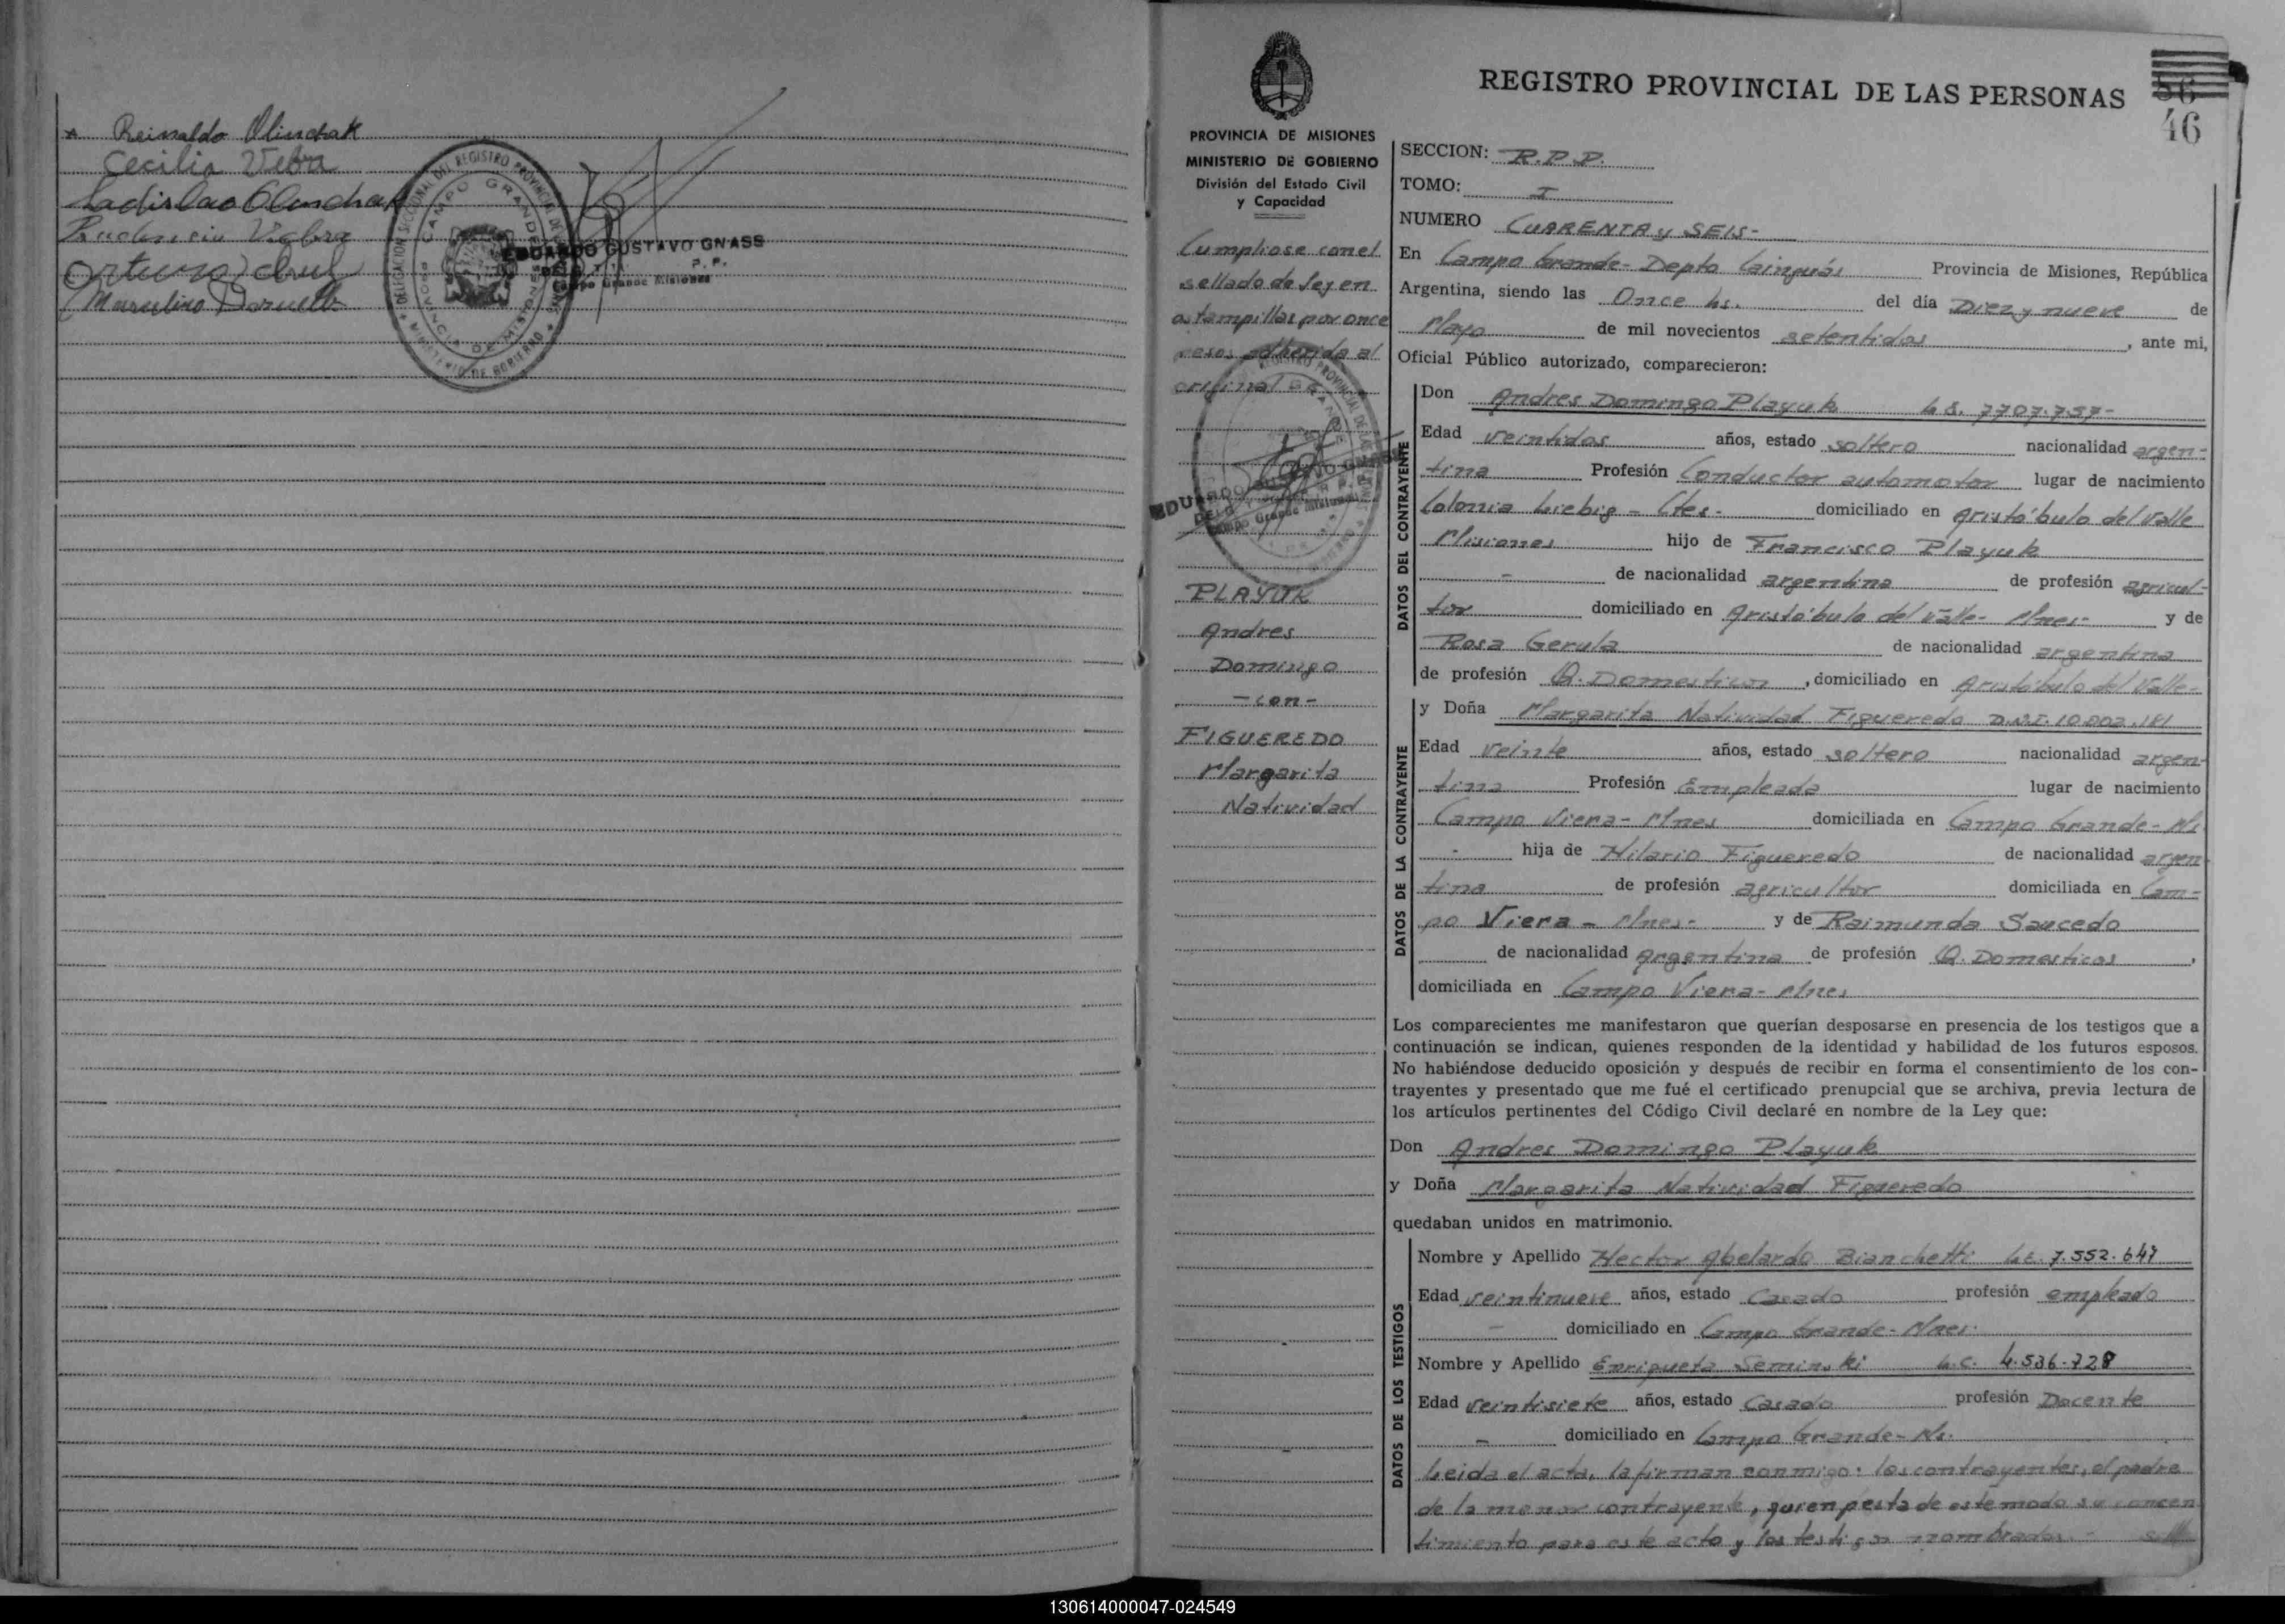 Reinaldo Olinchak
Cecilia Vebra
Ladislao Olinchak
Marcelino
DELEGACION SECCIONAL DEL REGISTRO PROVINCIAL DE LAS PERSONAS
CAMPO GRANDE
PROVINCIA DE MISIONES
MINISTERIO DE GOBIERNO
EDUARDO GUSTAVO GNASS
Campo Grande Misiones
PROVINCIA DE MISIONES
MINISTERIO DE GOBIERNO
División del Estado Civil
y Capacidad
Cumpliose con el
sellado de ley en
estampillas por once
pesos adherida al
original
EDUARDO GUSTAVO GNASS
Campo Grande Misiones
PLAYUK
Andres
Domingo
-con-
FIGUEREDO
Margarita
Natividad
REGISTRO PROVINCIAL DE LAS PERSONAS
56
46
SECCION: R.P.P.
TOMO: I
NUMERO CUARENTA y SEIS-
En Campo Grande- Depto Cainguás Provincia de Misiones, República
Argentina, siendo las Once hs. del día Diez y nueve de
Mayo de mil novecientos setentidos, ante mi,
Oficial Público autorizado, comparecieron:
DATOS DEL CONTRAYENTE
Don Andres Domingo Playuk 7.707.757-
Edad veintidos años, estado soltero nacionalidad argen-
tina Profesión Conductor automotor lugar de nacimiento
Colonia Liebig - Ctes- domiciliado en Aristóbulo del Valle
Misiones hijo de Francisco Playuk
- de nacionalidad argentina de profesión agricul-
tor domiciliado en Aristóbulo del Valle- Mnes- y de
Rosa Gerula de nacionalidad argentina
de profesión Q. Domesticos, domiciliado en Aristóbulo del Valle-
DATOS DE LA CONTRAYENTE
y Doña Margarita Natividad Figueredo D.N.I. 10.002.181
Edad veinte años, estado soltero nacionalidad argen-
tina Profesión Empleada lugar de nacimiento
Campo Viera- Mnes domiciliada en Campo Grande- Ms
- hija de Hilario Figueredo de nacionalidad argen-
tina de profesión agricultor domiciliada en Cam-
po Viera - Mnes- y de Raimunda Saucedo
de nacionalidad Argentina de profesión Q. Domesticos,
domiciliada en Campo Viera- Mnes
Los comparecientes me manifestaron que querían desposarse en presencia de los testigos que a
continuación se indican, quienes responden de la identidad y habilidad de los futuros esposos.
No habiéndose deducido oposición y después de recibir en forma el consentimiento de los con-
trayentes y presentado que me fué el certificado prenupcial que se archiva, previa lectura de
los artículos pertinentes del Código Civil declaré en nombre de la Ley que:
Don Andres Domingo Playuk
y Doña Margarita Natividad Figueredo
quedaban unidos en matrimonio.
DATOS DE LOS TESTIGOS
Nombre y Apellido Hector Abelardo Bianchetti L.E. 7.552.649
Edad veintinueve años, estado Casado profesión empleado
- domiciliado en Campo Grande- Mnes.
Nombre y Apellido Enriqueta Seminski L.C. 4.536.728
Edad veintisiete años, estado Casado profesión Docente
- domiciliado en Campo Grande- Ms.
Leida el acta, la firman conmigo: los contrayentes, el padre
de la menor contrayente, quien pesta de este modo su concen
timiento para este acto y los testigos nombrados.-
130614000047-024549